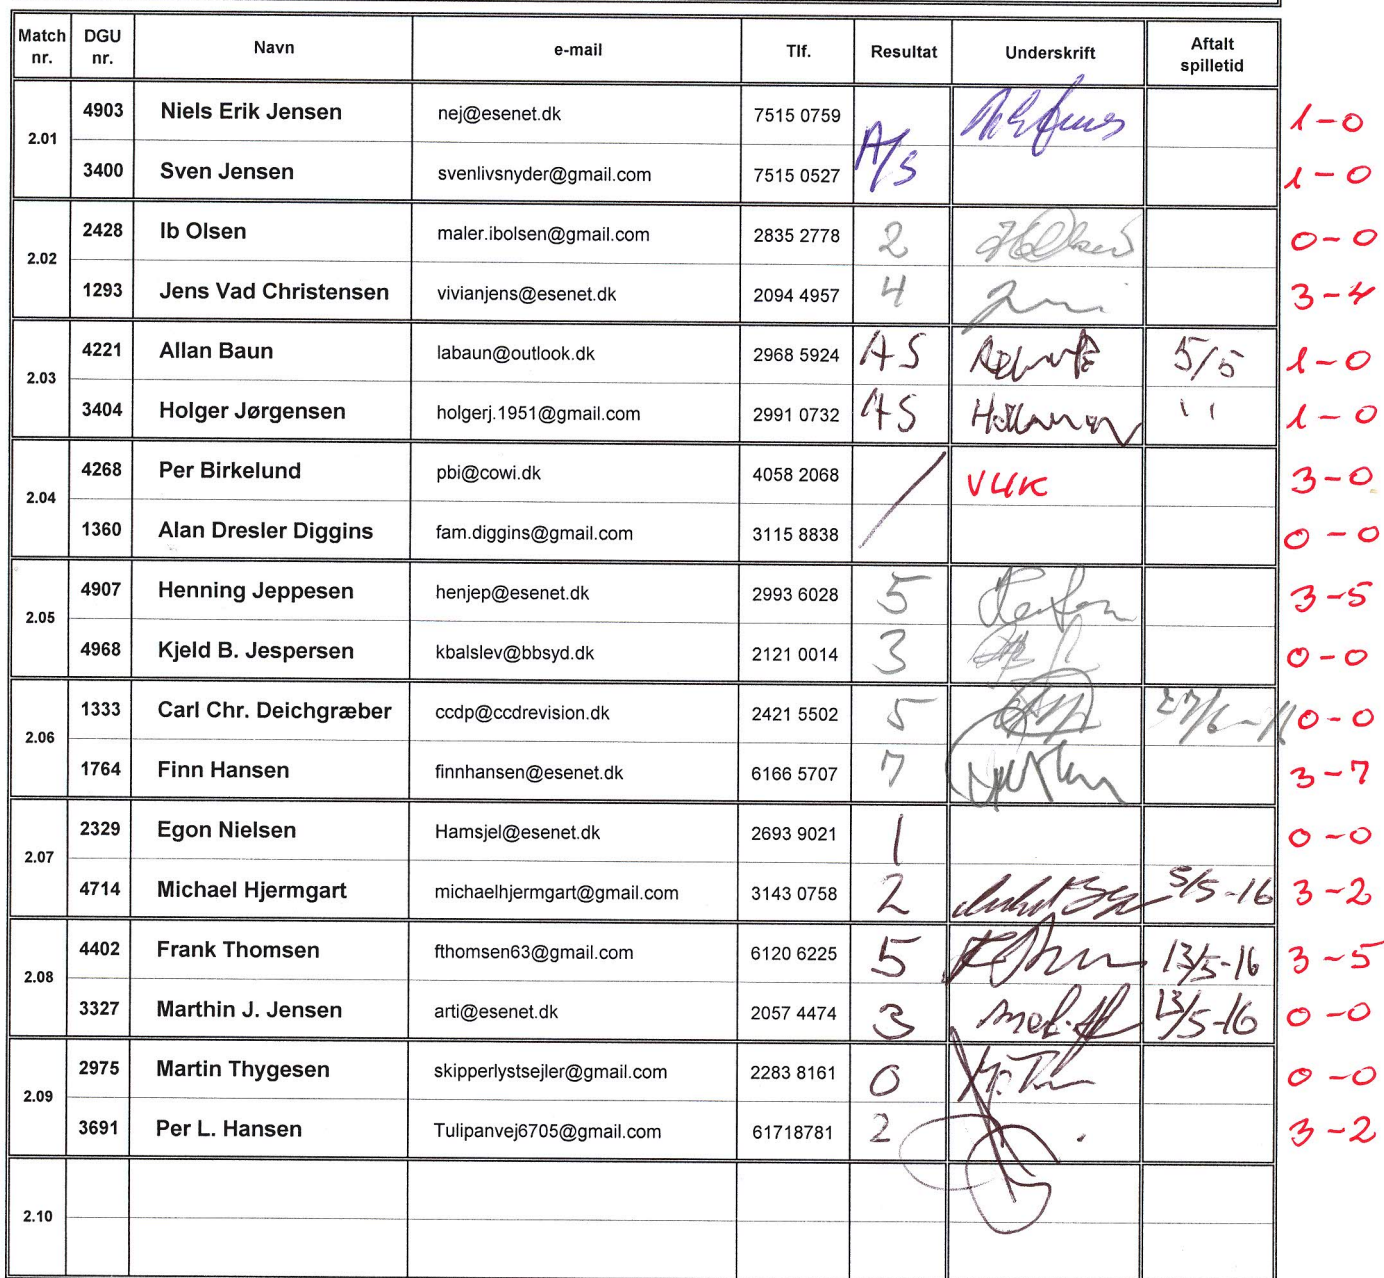 Match nr. DGU nr. Navn e-mail Tlf. Resultat Underskrift Aftalt spilletid
2.01
4903 Niels Erik Jensen nej@esenet.dk 7515 0759 A/S 1-0
3400 Sven Jensen svenlivsnyder@gmail.com 7515 0527 1-0
2.02
2428 Ib Olsen maler.ibolsen@gmail.com 2835 2778 2 0-0
1293 Jens Vad Christensen vivianjens@esenet.dk 2094 4957 4 3-4
2.03
4221 Allan Baun labaun@outlook.dk 2968 5924 AS 5/5 1-0
3404 Holger Jørgensen holgerj.1951@gmail.com 2991 0732 AS '' 1-0
2.04
4268 Per Birkelund pbi@cowi.dk 4058 2068 / VUK 3-0
1360 Alan Dresler Diggins fam.diggins@gmail.com 3115 8838 0-0
2.05
4907 Henning Jeppesen henjep@esenet.dk 2993 6028 5 3-5
4968 Kjeld B. Jespersen kbalslev@bbsyd.dk 2121 0014 3 0-0
2.06
1333 Carl Chr. Deichgræber ccdp@ccdrevision.dk 2421 5502 5 27/6-16 0-0
1764 Finn Hansen finnhansen@esenet.dk 6166 5707 7 3-7
2.07
2329 Egon Nielsen Hamsjel@esenet.dk 2693 9021 1 0-0
4714 Michael Hjermgart michaelhjermgart@gmail.com 3143 0758 2 5/5-16 3-2
2.08
4402 Frank Thomsen fthomsen63@gmail.com 6120 6225 5 13/5-16 3-5
3327 Marthin J. Jensen arti@esenet.dk 2057 4474 3 13/5-16 0-0
2.09
2975 Martin Thygesen skipperlystsejler@gmail.com 2283 8161 0 0-0
3691 Per L. Hansen Tulipanvej6705@gmail.com 61718781 2 3-2
2.10